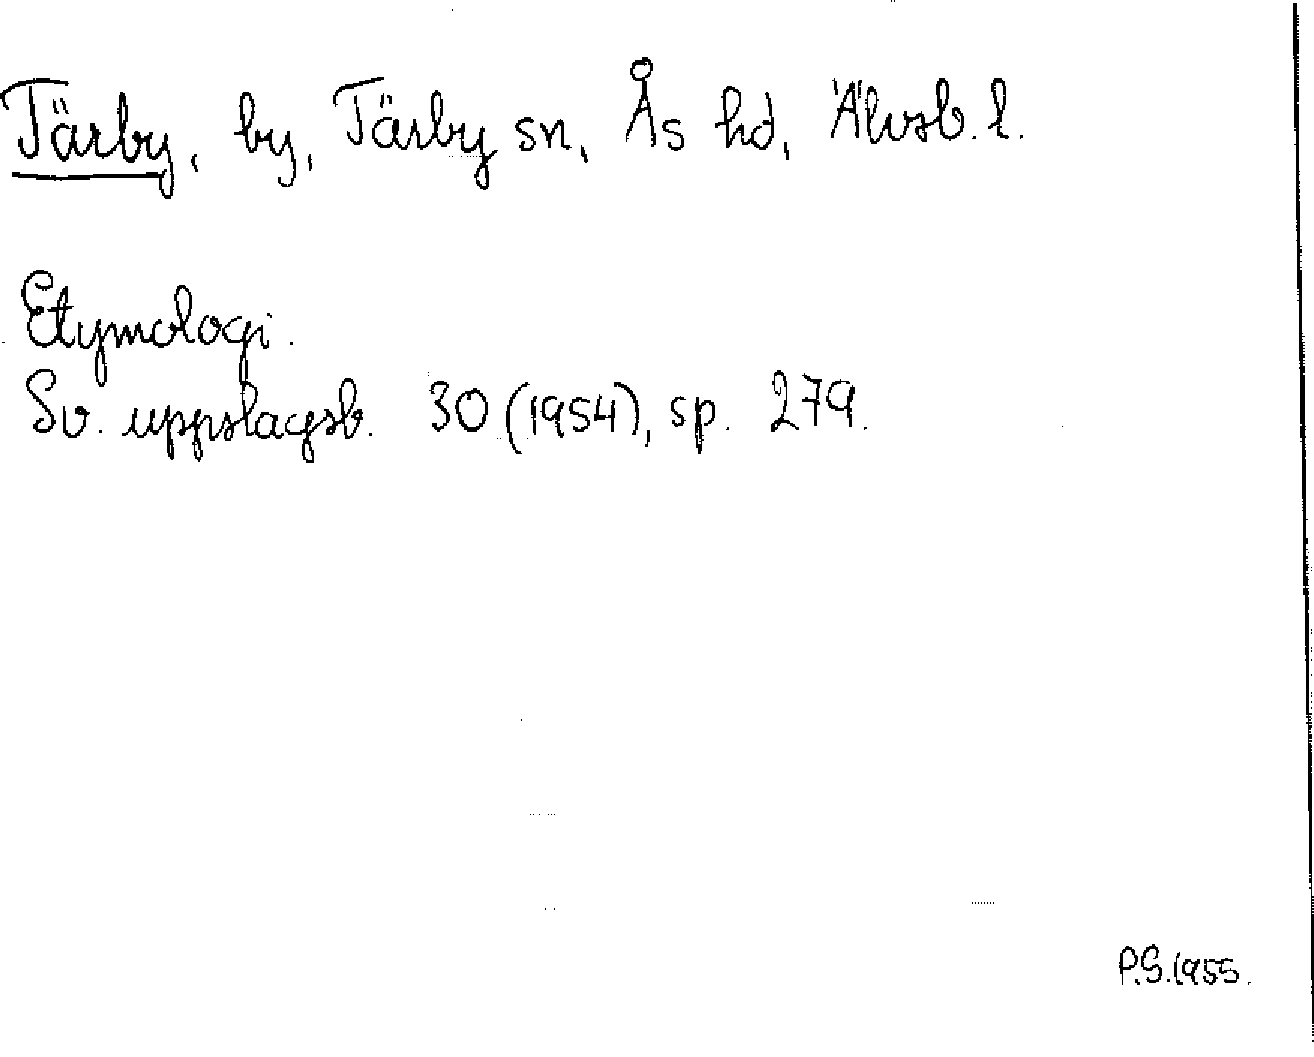 Tärby, by, Tärby sn, Ås hd, Älvsb. l.
Etymologi.
Sv. uppslagsb. 30 (1954), sp. 279.
P.S. 1955.